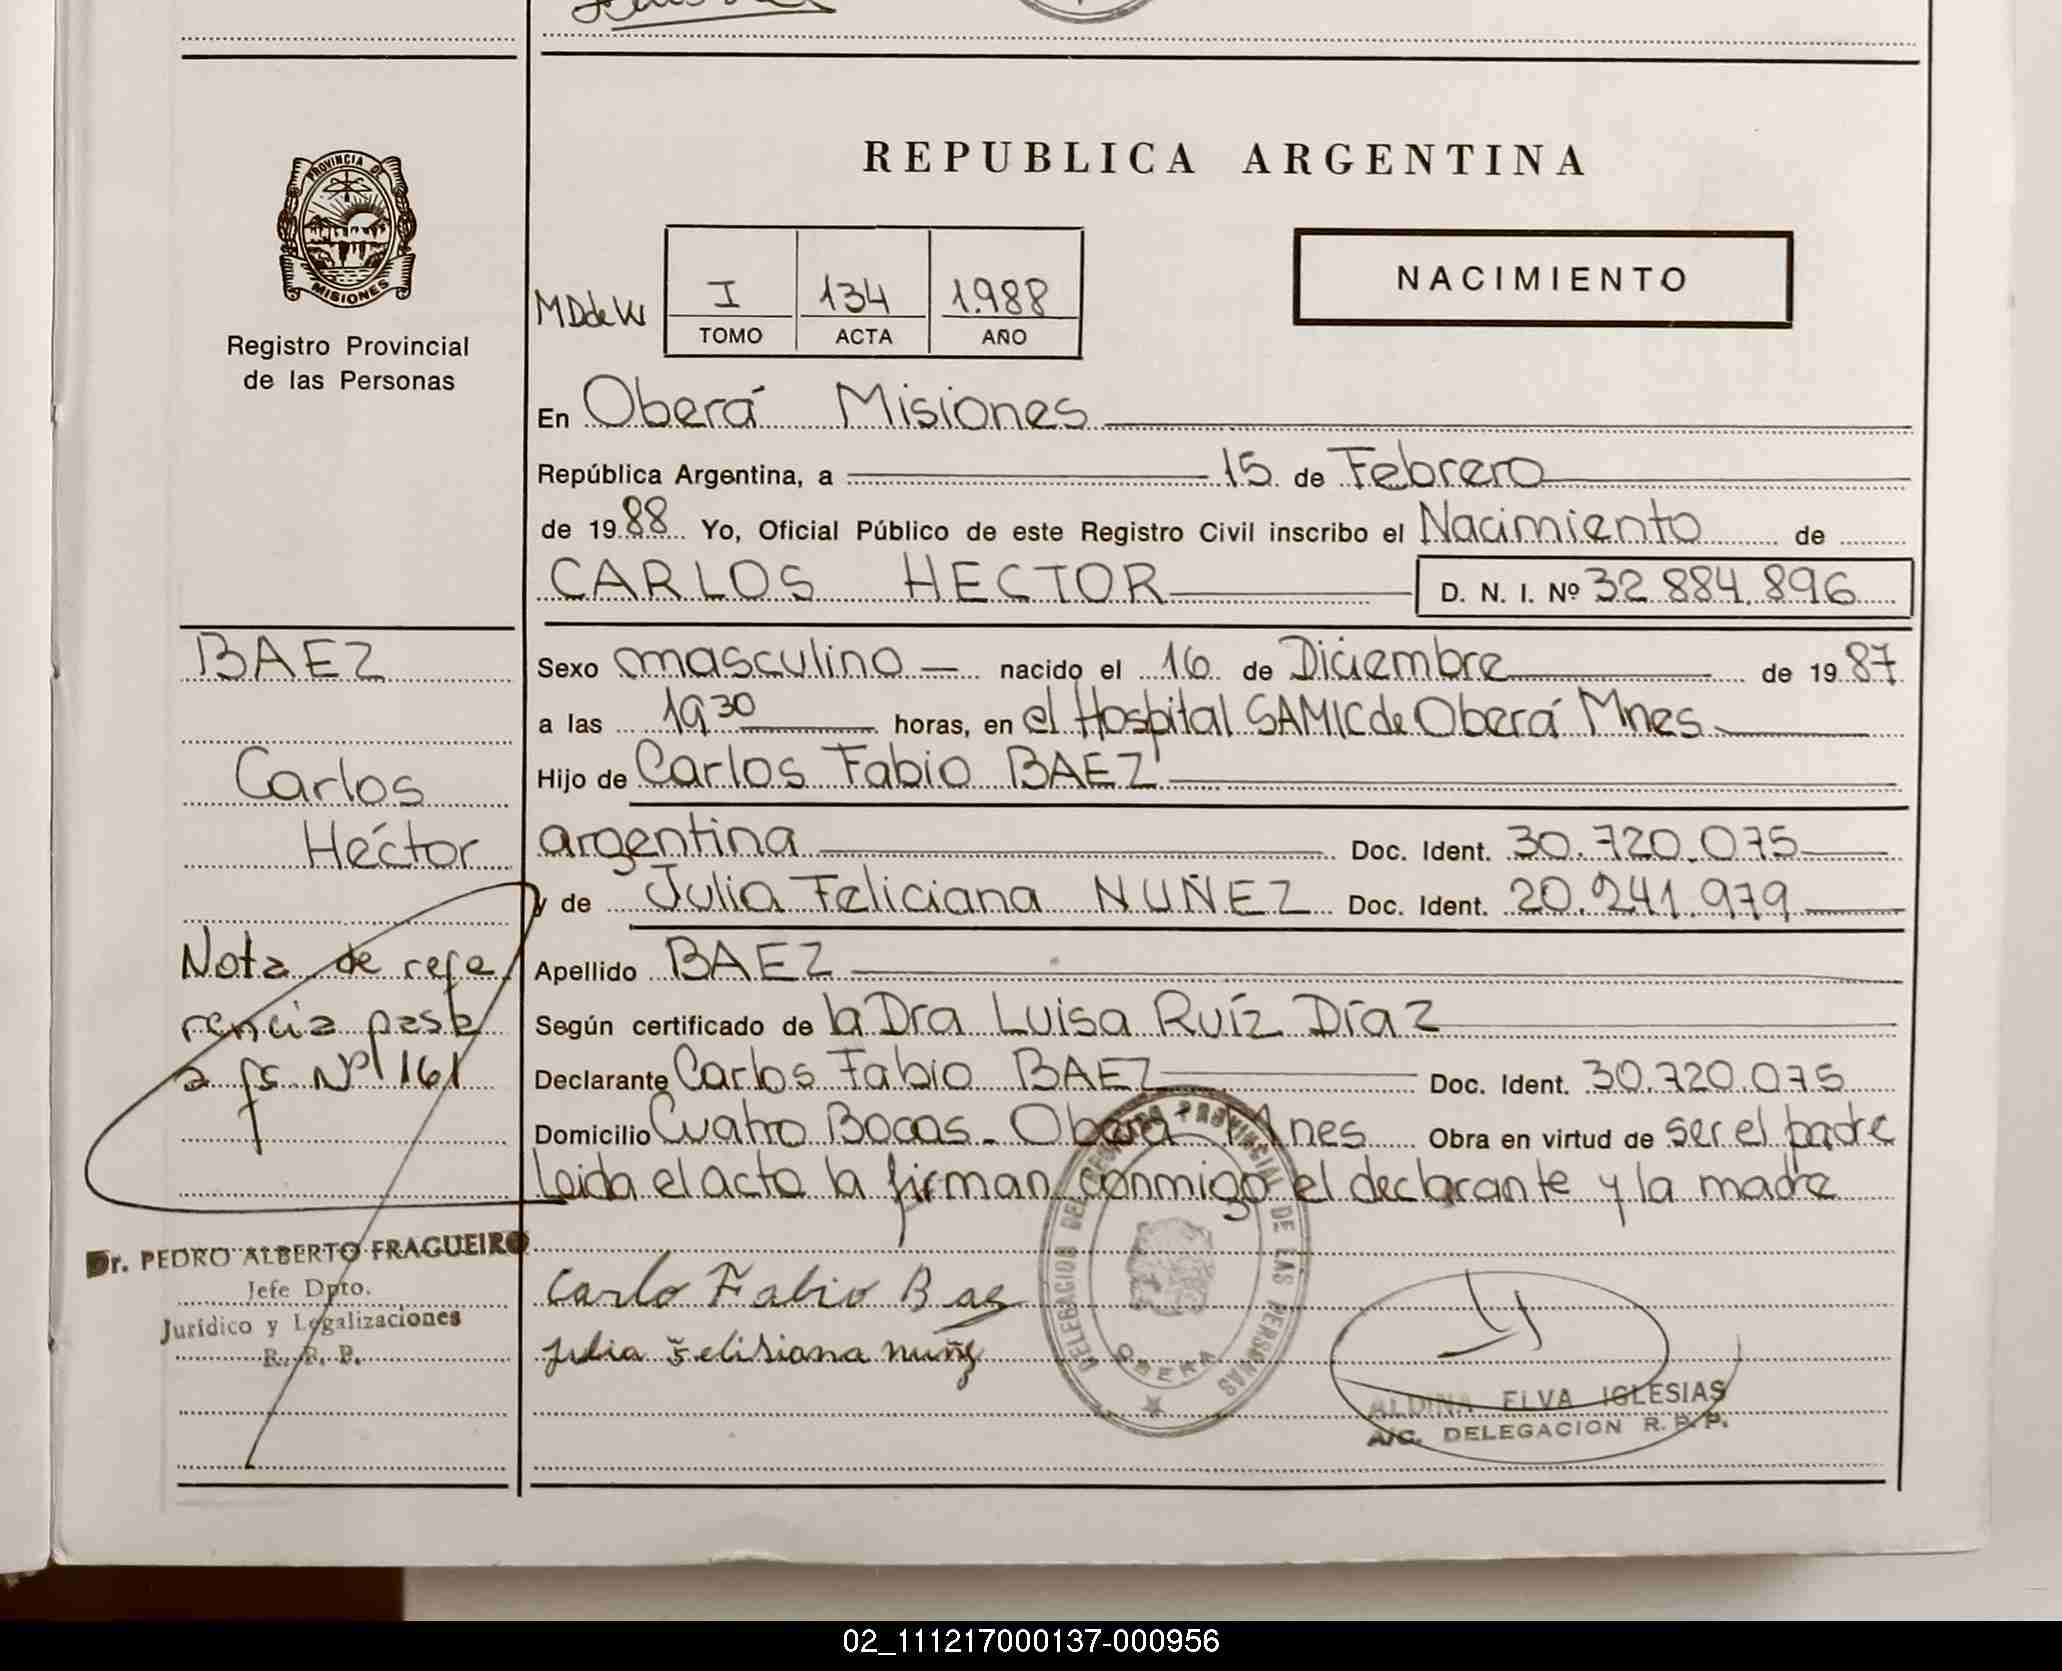 PROVINCIA DE
MISIONES
Registro Provincial
de las Personas
REPUBLICA ARGENTINA
NACIMIENTO
I 134 1.988
TOMO ACTA AÑO
En Oberá Misiones
República Argentina, a 15 de Febrero
de 1988 Yo, Oficial Público de este Registro Civil inscribo el Nacimiento de
CARLOS HECTOR D. N. I. Nº 32.884.896
BAEZ
Carlos
Héctor
Nota de refe
rencia pasa
a fs. Nº 161
Dr. PEDRO ALBERTO FRAGUEIRO
Jefe Dpto.
Jurídico y Legalizaciones
R. P. P.
Sexo masculino nacido el 16 de Diciembre de 1987
a las 19 30 horas, en el Hospital SAMIC de Oberá Mnes
Hijo de Carlos Fabio BAEZ
argentina Doc. Ident. 30.720.075
y de Julia Feliciana NUÑEZ Doc. Ident. 20.241.979
Apellido BAEZ
Según certificado de la Dra Luisa Ruíz Díaz
Declarante Carlos Fabio BAEZ Doc. Ident. 30.720.075
Domicilio Cuatro Bocas - Oberá Mnes Obra en virtud de ser el padre
Leida el acta la firman conmigo el declarante y la madre
Carlo Fabio Baes
Julia Felisiana nuñz
DELEGACION DEL REGISTRO PROVINCIAL DE LAS PERSONAS
OBERA
ALDINA ELVA IGLESIAS
A/C. DELEGACION R. P. P.
02_111217000137-000956